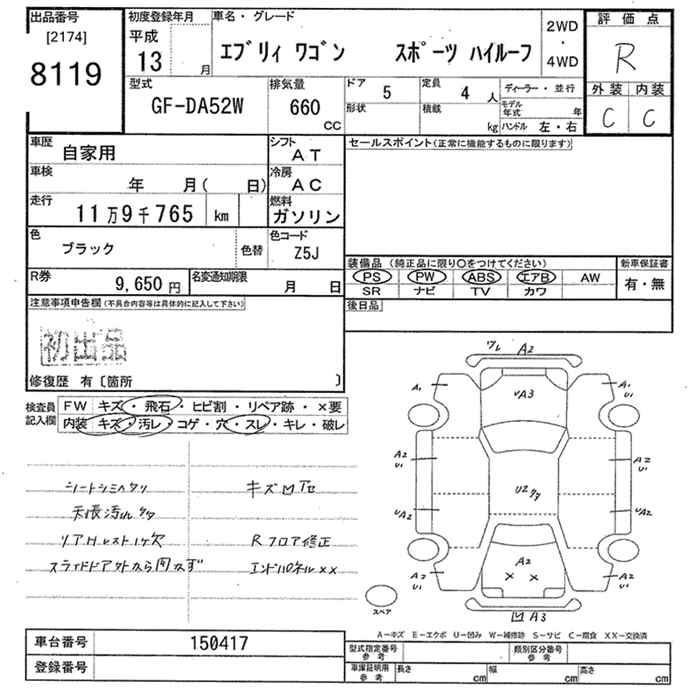 出品番号 初度登録年月 車名・グレード 評価点
[2174] 平成 2WD
8119 13 月 エブリィ ワゴン スポーツ ハイルーフ ・ R
4WD
型式 排気量 ドア 5 定員 4 人 ディーラー・並行 外装 内装
GF-DA52W 660 cc 形状 積載 kg モデル年式 年 C C
ハンドル 左・右
車歴 自家用 シフト AT セールスポイント(正常に機能するものに限ります)
車検 年 月( 日) 冷房 AC
走行 11万9千765 km 燃料 ガソリン
色 ブラック 色替 色コード Z5J
装備品 (純正品に限り○をつけてください) 新車保証書
R券 9,650円 名変通知期限 月 日 PS PW ABS エアB AW 有・無
SR ナビ TV カワ
注意事項申告欄(不具合内容等は具体的に記入して下さい) 後日品
初出品
修復歴 有〔箇所 〕
検査員記入欄 FW キズ・飛石・ヒビ割・リペア跡・×要
内装 キズ・汚レ・コゲ・穴・スレ・キレ・破レ
ワレ A2
UA3
A1 A1 U1
シートシミヘタリ キズ凹サビ
A2 U1 A2 U1
天張汚れ
UA2 U2 UA2
リアHレスト1ケ欠 Rフロア修正
スライドドアアウトから開かず エンドパネル××
A2 U1 A2 A2 U1
× ×
スペア
凹 A3
A-キズ E-エクボ U-凹み W-補修跡 S-サビ C-腐食 XX-交換済
車台番号 150417
型式指定番号 参考 類別区分番号 参考
登録番号
車庫証明用 参考 長さ cm 幅 cm 高さ cm